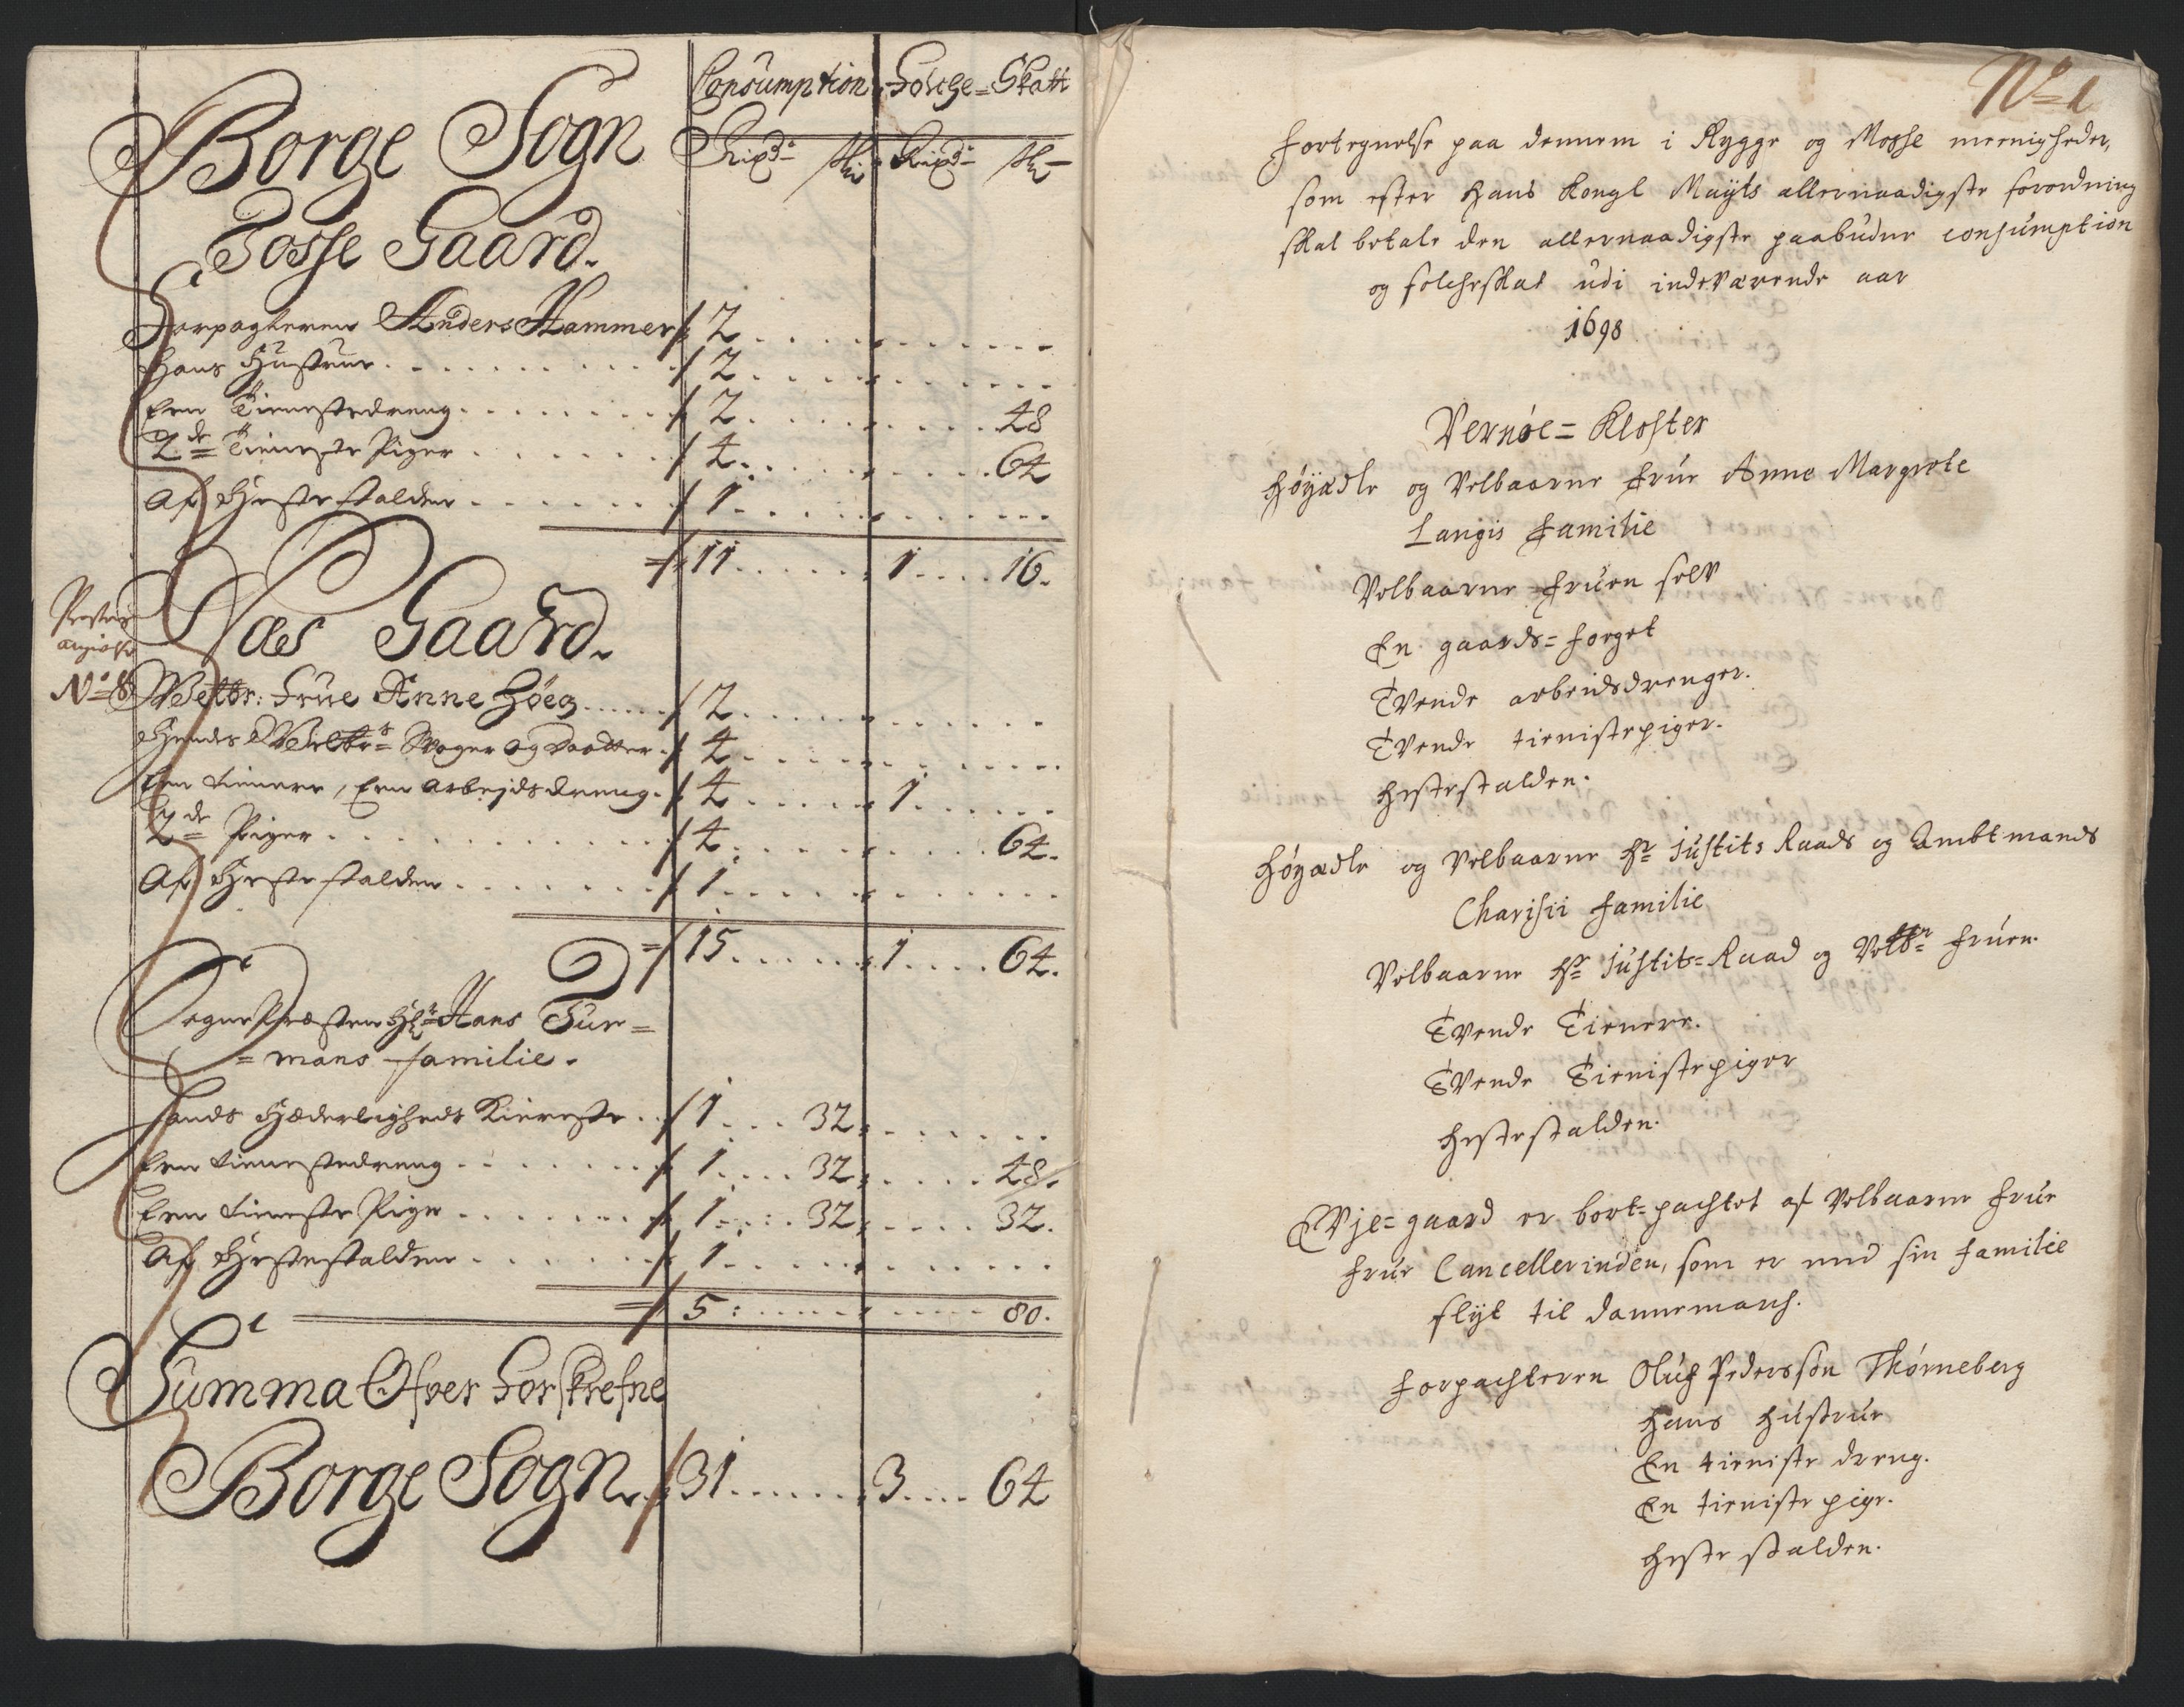 Consumption Folche=Skatt
Borge Sogn Rixdr sk Rixdr sk
Tosse Gaard.
Forpagteren Anders Hammer 2
Hans Hustrue 2
Een Tienestedreng 2 48
2de Tieneste Piger 4 64
Af Hestestalden 1
11 1 16.
Næs Gaard.
Præstens
No 8 Welbr: Frue Anne Høeg 2
Hendes Welbrs Svoger og Daatter 4
Een tienere, Een Arbejdsdreng 4 1
2de Piger 4 64.
Af Hestestalden 1
15 1 64.
Sogne Præsten Hr Hans Tur=
=mans familie.
Hands Hæderligheds Kiereste 1 32
Een tienestedreng 1 32 48.
Een tieneste Pige 1 32 32.
Af Hestestalden 1
5 80.
Summa Ofver Forskrefne
Borge Sogn 31 3 64
No 1
Fortegnelse paa dennem i Rygge og Mosse meenigheder,
som efter Hans Kongl Mayts allernaadigste forordning
skal betale den allernaadigste paabudne consumption
og folcheskat udi indeværende aar
1698.
Vernøe=Kloster
Høyædle og Velbaarne Frue Anne Margrete
Langis Familie
Velbaarne Fruen selv
En gaards=forget
Tvende arbeidsdrenger.
Tvende tienistepiger.
Hestestalden.
Høyædle og Velbaarne Hr Justits Raads og Ambtmands
Charisii Familie
Velbaarne Hr Justits=Raad og Velbr Fruen.
Tvende Tienere.
Tvende Tienistepiger
Hestestalden.
Evje=gaard er bort=pachtet af Velbaarne Frue
Frue Cancellerinden, som er med sin Familie
flyt til Dannemarch.
Forpachteren Oluf Pedersøn Thørneberg
Hans Hustrue
En tieniste dreng.
En tieniste pige.
Heste stalden.